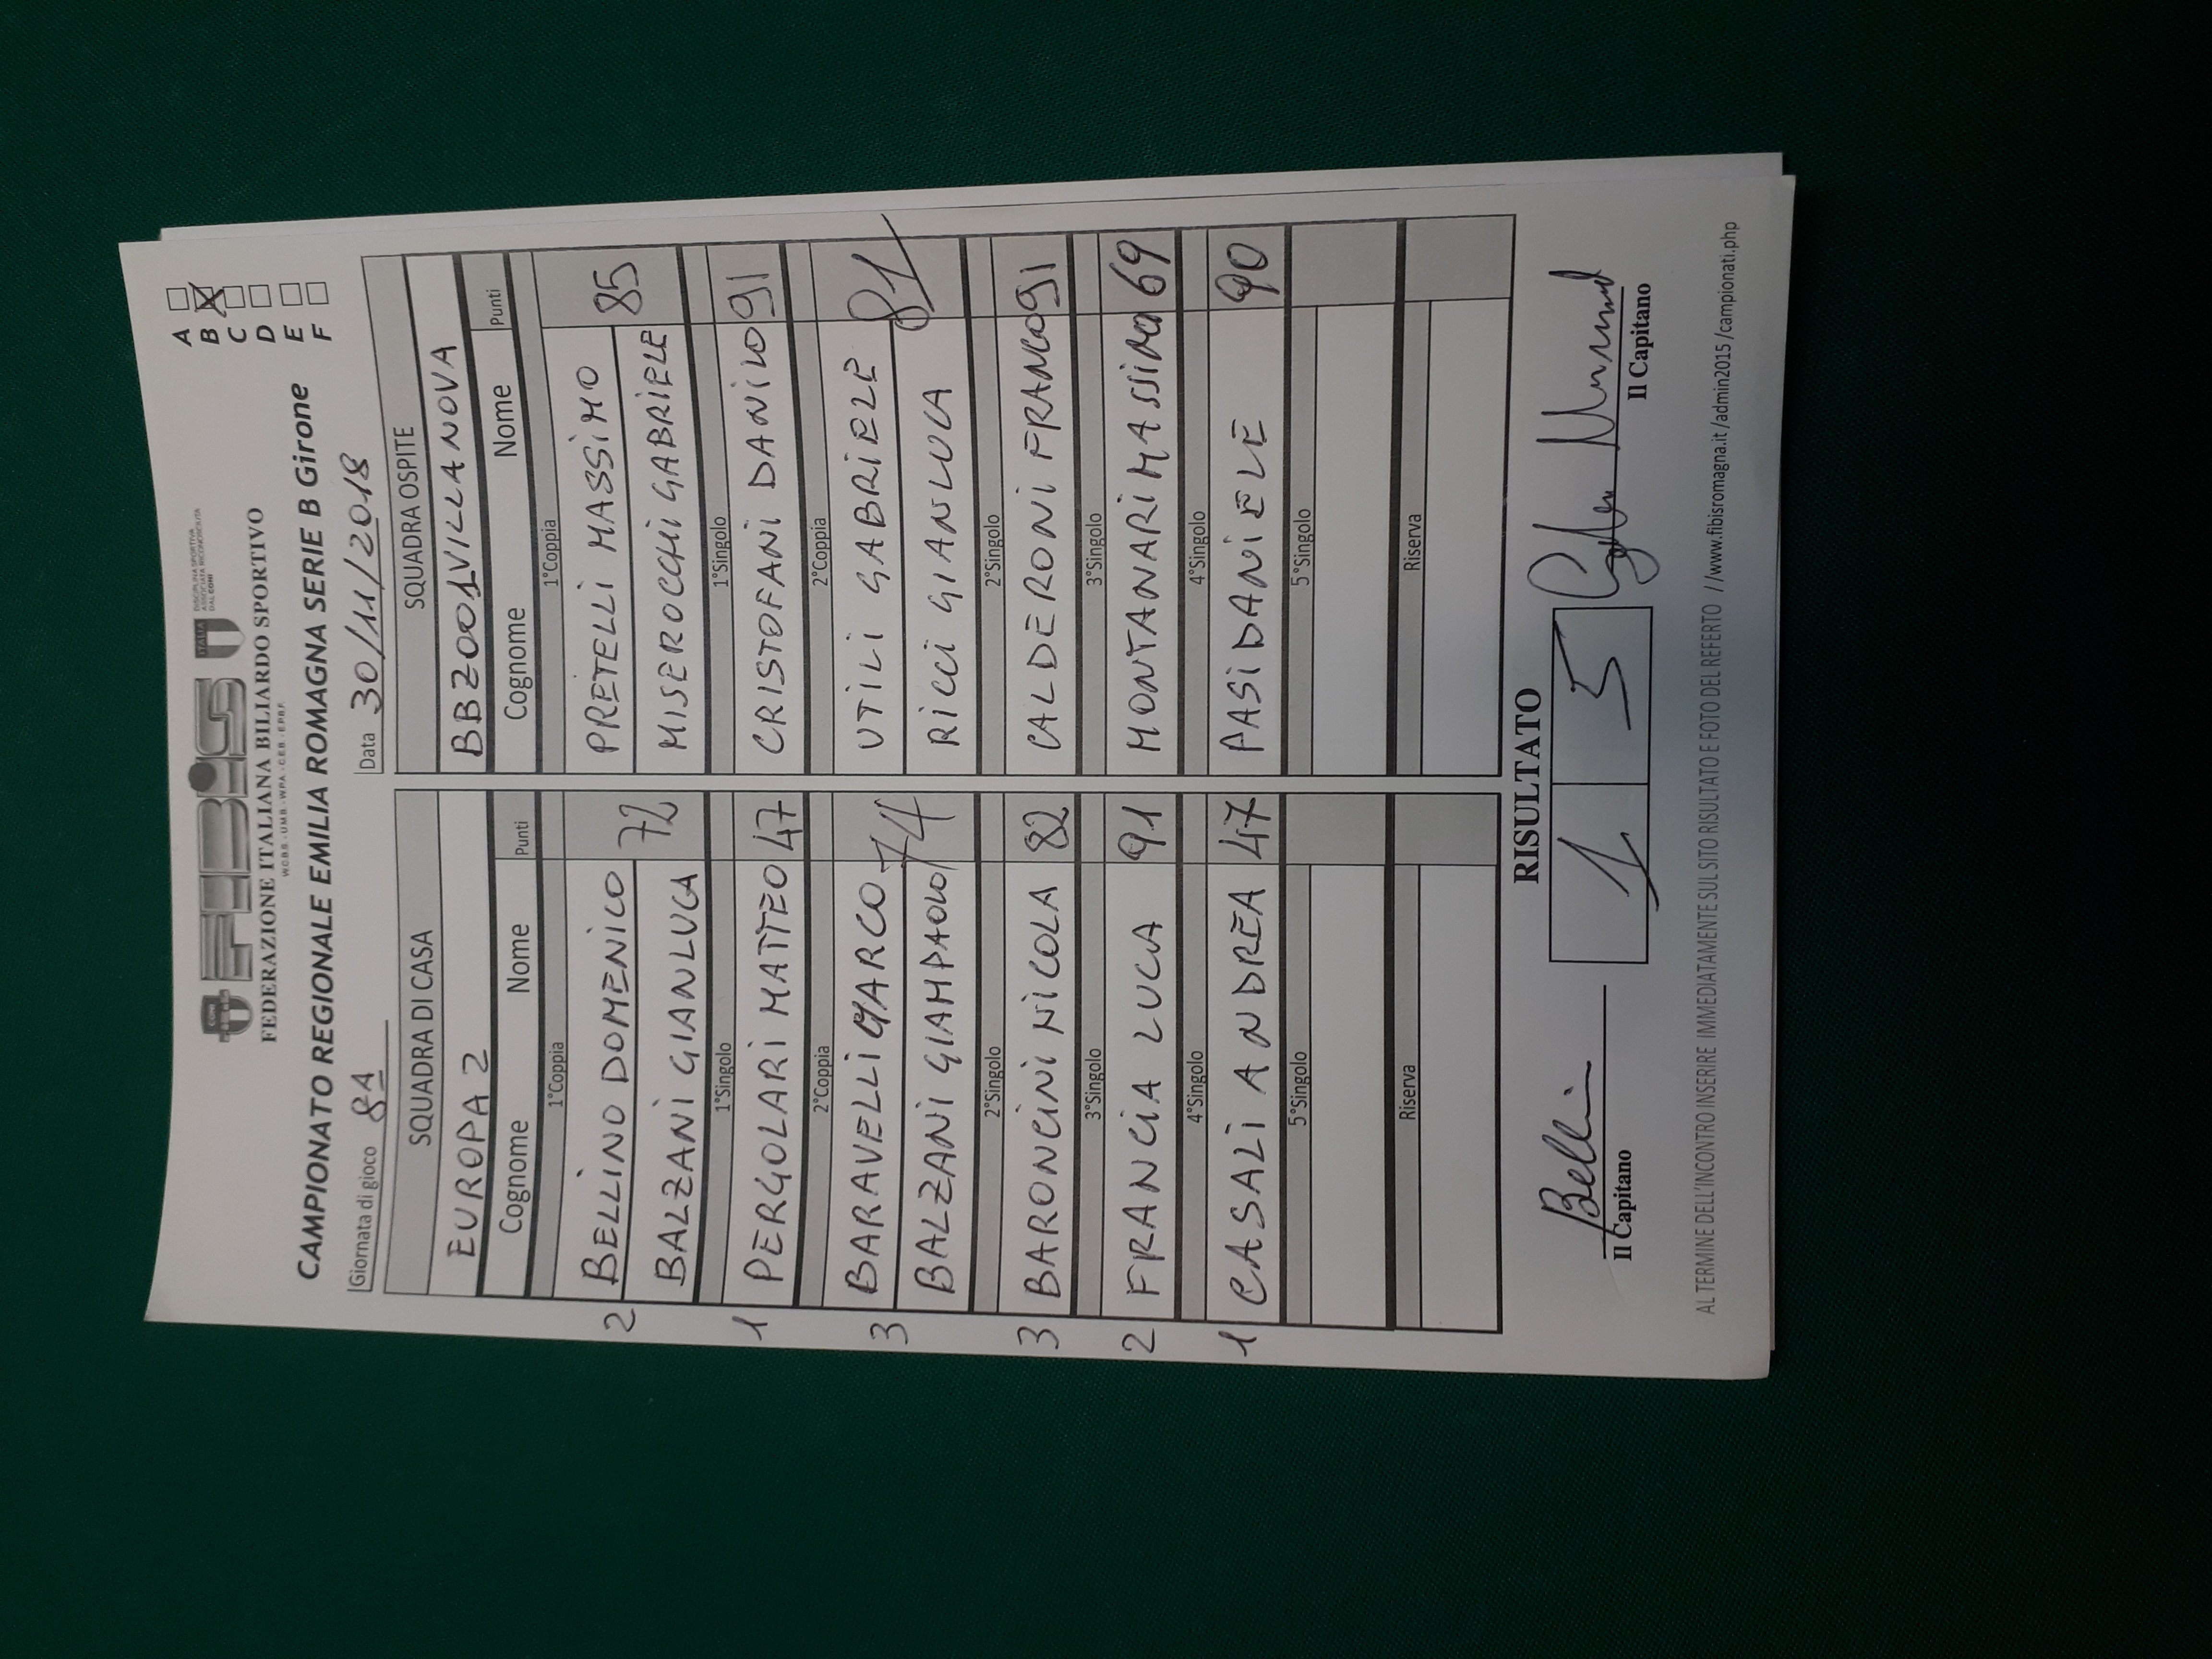 FEBIS
ITALIA
DISCIPLINA SPORTIVA
ASSOCIATA RICONOSCIUTA
DAL CONI
CONI
FEDERAZIONE ITALIANA BILIARDO SPORTIVO
W.C.B.S. - U.M.B. - W.P.A. - C.E.B. - E.P.B.F.
CAMPIONATO REGIONALE EMILIA ROMAGNA SERIE B Girone
A
B X
C
D
E
F
Giornata di gioco 8A Data 30/11/2018
SQUADRA DI CASA SQUADRA OSPITE
EUROPA 2 BBZ001VILLANOVA
Cognome Nome Punti Cognome Nome Punti
1°Coppia 1°Coppia
2 BELLINO DOMENICO 72 PRETELLI MASSIMO 85
BALZANI GIANLUCA MISEROCCHI GABRIELE
1°Singolo 1°Singolo
1 PERGOLARI MATTEO 47 CRISTOFANI DANILO 91
2°Coppia 2°Coppia
3 BARAVELLI MARCO 74 UTILI GABRIELE 81
BALZANI GIAMPAOLO RICCI GIANLUCA
2°Singolo 2°Singolo
3 BARONCINI NICOLA 82 CALDERONI FRANCO 91
3°Singolo 3°Singolo
2 FRANCIA LUCA 91 MONTANARI MASSIMO 69
4°Singolo 4°Singolo
1 CASALI ANDREA 47 PASI DANIELE 90
5°Singolo 5°Singolo
Riserva Riserva
RISULTATO
Bellin 1 5
Il Capitano Il Capitano
AL TERMINE DELL'INCONTRO INSERIRE IMMEDIATAMENTE SUL SITO RISULTATO E FOTO DEL REFERTO //www.fibisromagna.it/admin2015/campionati.php